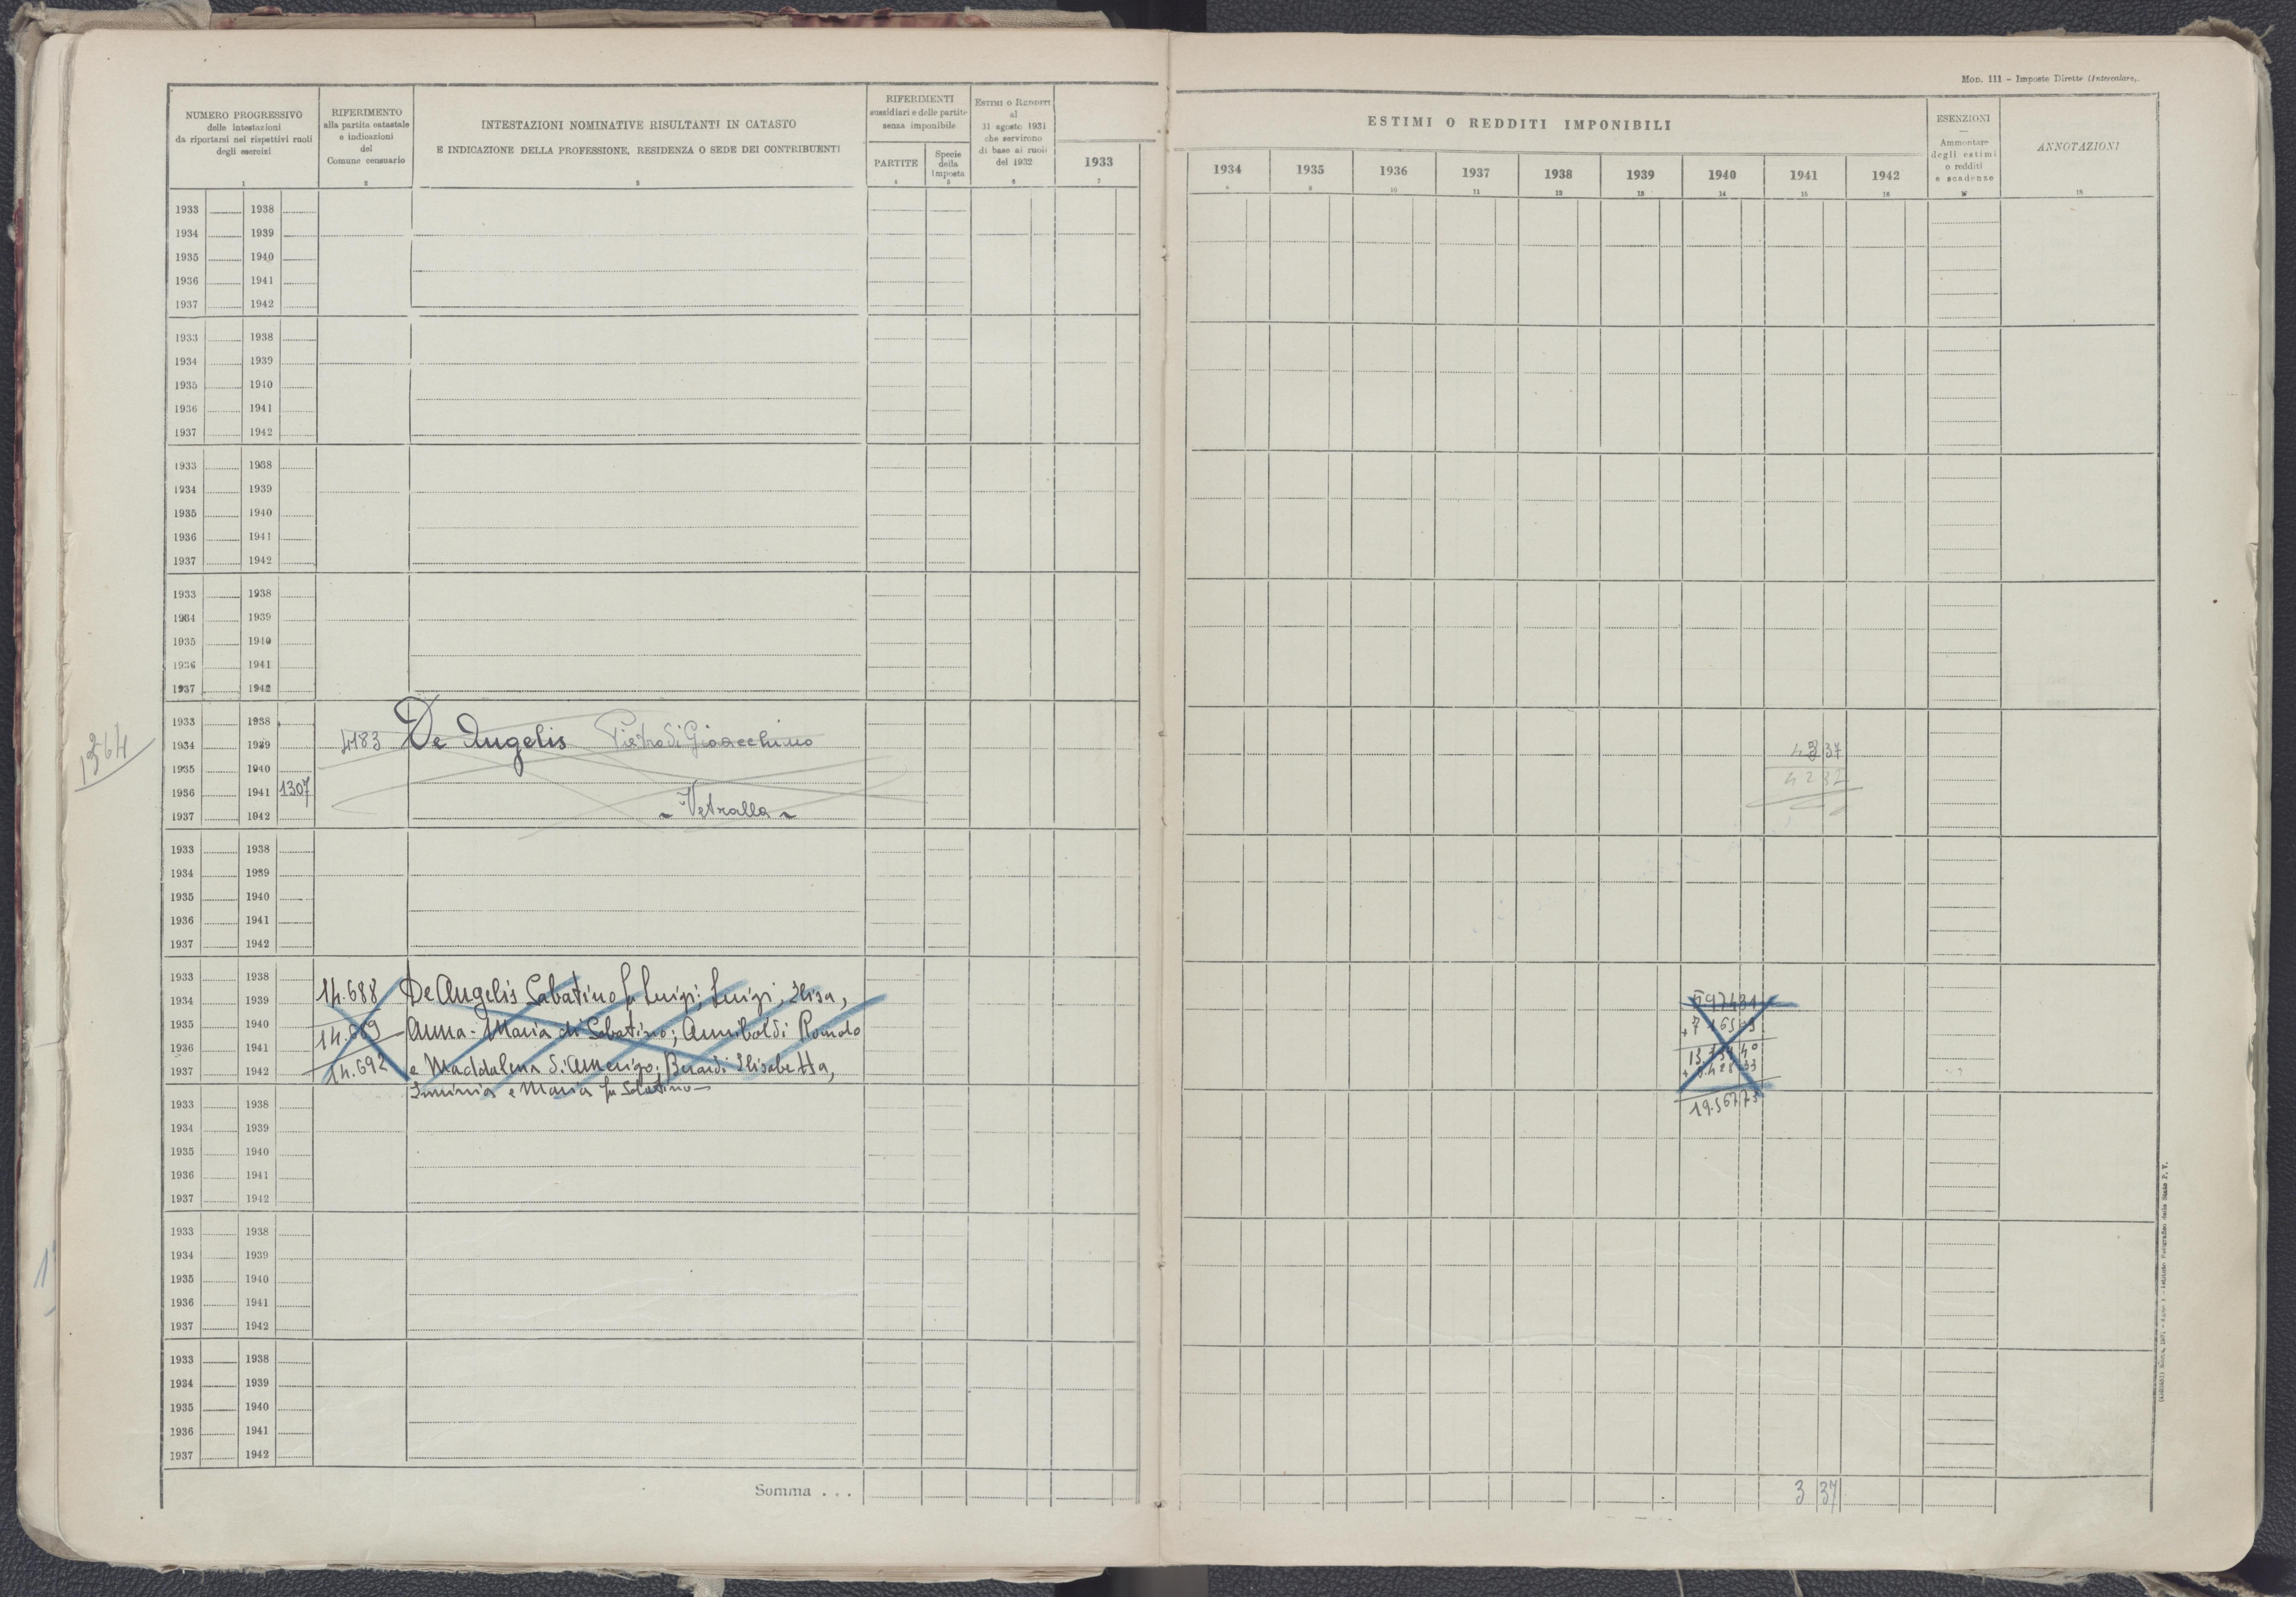 Mod. 111 – Imposte Dirette (Intercalare).
NUMERO PROGRESSIVO
delle intestazioni
da riportarsi nei rispettivi ruoli
degli esercizi
1
RIFERIMENTO
alla partita catastale
e indicazioni
del
Comune censuario
2
INTESTAZIONI NOMINATIVE RISULTANTI IN CATASTO
E INDICAZIONE DELLA PROFESSIONE, RESIDENZA O SEDE DEI CONTRIBUENTI
3
RIFERIMENTI
sussidiari e delle partite
senza imponibile
PARTITE
4
Specie
della
Imposta
5
Estimi o Redditi
al
31 agosto 1931
che servirono
di base ai ruoli
del 1932
6
1933
7
ESTIMI O REDDITI IMPONIBILI
1934 1935 1936 1937 1938 1939 1940 1941 1942
8 9 10 11 12 13 14 15 16
ESENZIONI
—
Ammontare
degli estimi
o redditi
e scadenze
17
ANNOTAZIONI
18
1933 1938
1934 1939
1935 1940
1936 1941
1937 1942
1933 1938
1934 1939
1935 1940
1936 1941
1937 1942
1933 1938
1934 1939
1935 1940
1936 1941
1937 1942
1933 1938
1934 1939
1935 1940
1936 1941
1937 1942
1933 1938
1934 1939 4183 De Angelis Pietro di Gioacchino
1935 1940
1936 1941 1307 4237
1937 1942 ~ Vetralla ~
1933 1938
1934 1939
1935 1940
1936 1941
1937 1942
1933 1938
1934 1939 14.688 De Angelis Sabatino fu Luigi; Luigi, Elisa,
1935 1940 14.689 Anna-Maria di Sabatino; Anniboldi Romolo
1936 1941
1937 1942 14.692 e Maddalena di Amerigo; Berardi Elisabetta,
e Maria fu Sabatino—
19.567 73
1933 1938
1934 1939
1935 1940
1936 1941
1937 1942
1933 1938
1934 1939
1935 1940
1936 1941
1937 1942
1933 1938
1934 1939
1935 1940
1936 1941
1937 1942
Somma . . . 3 37